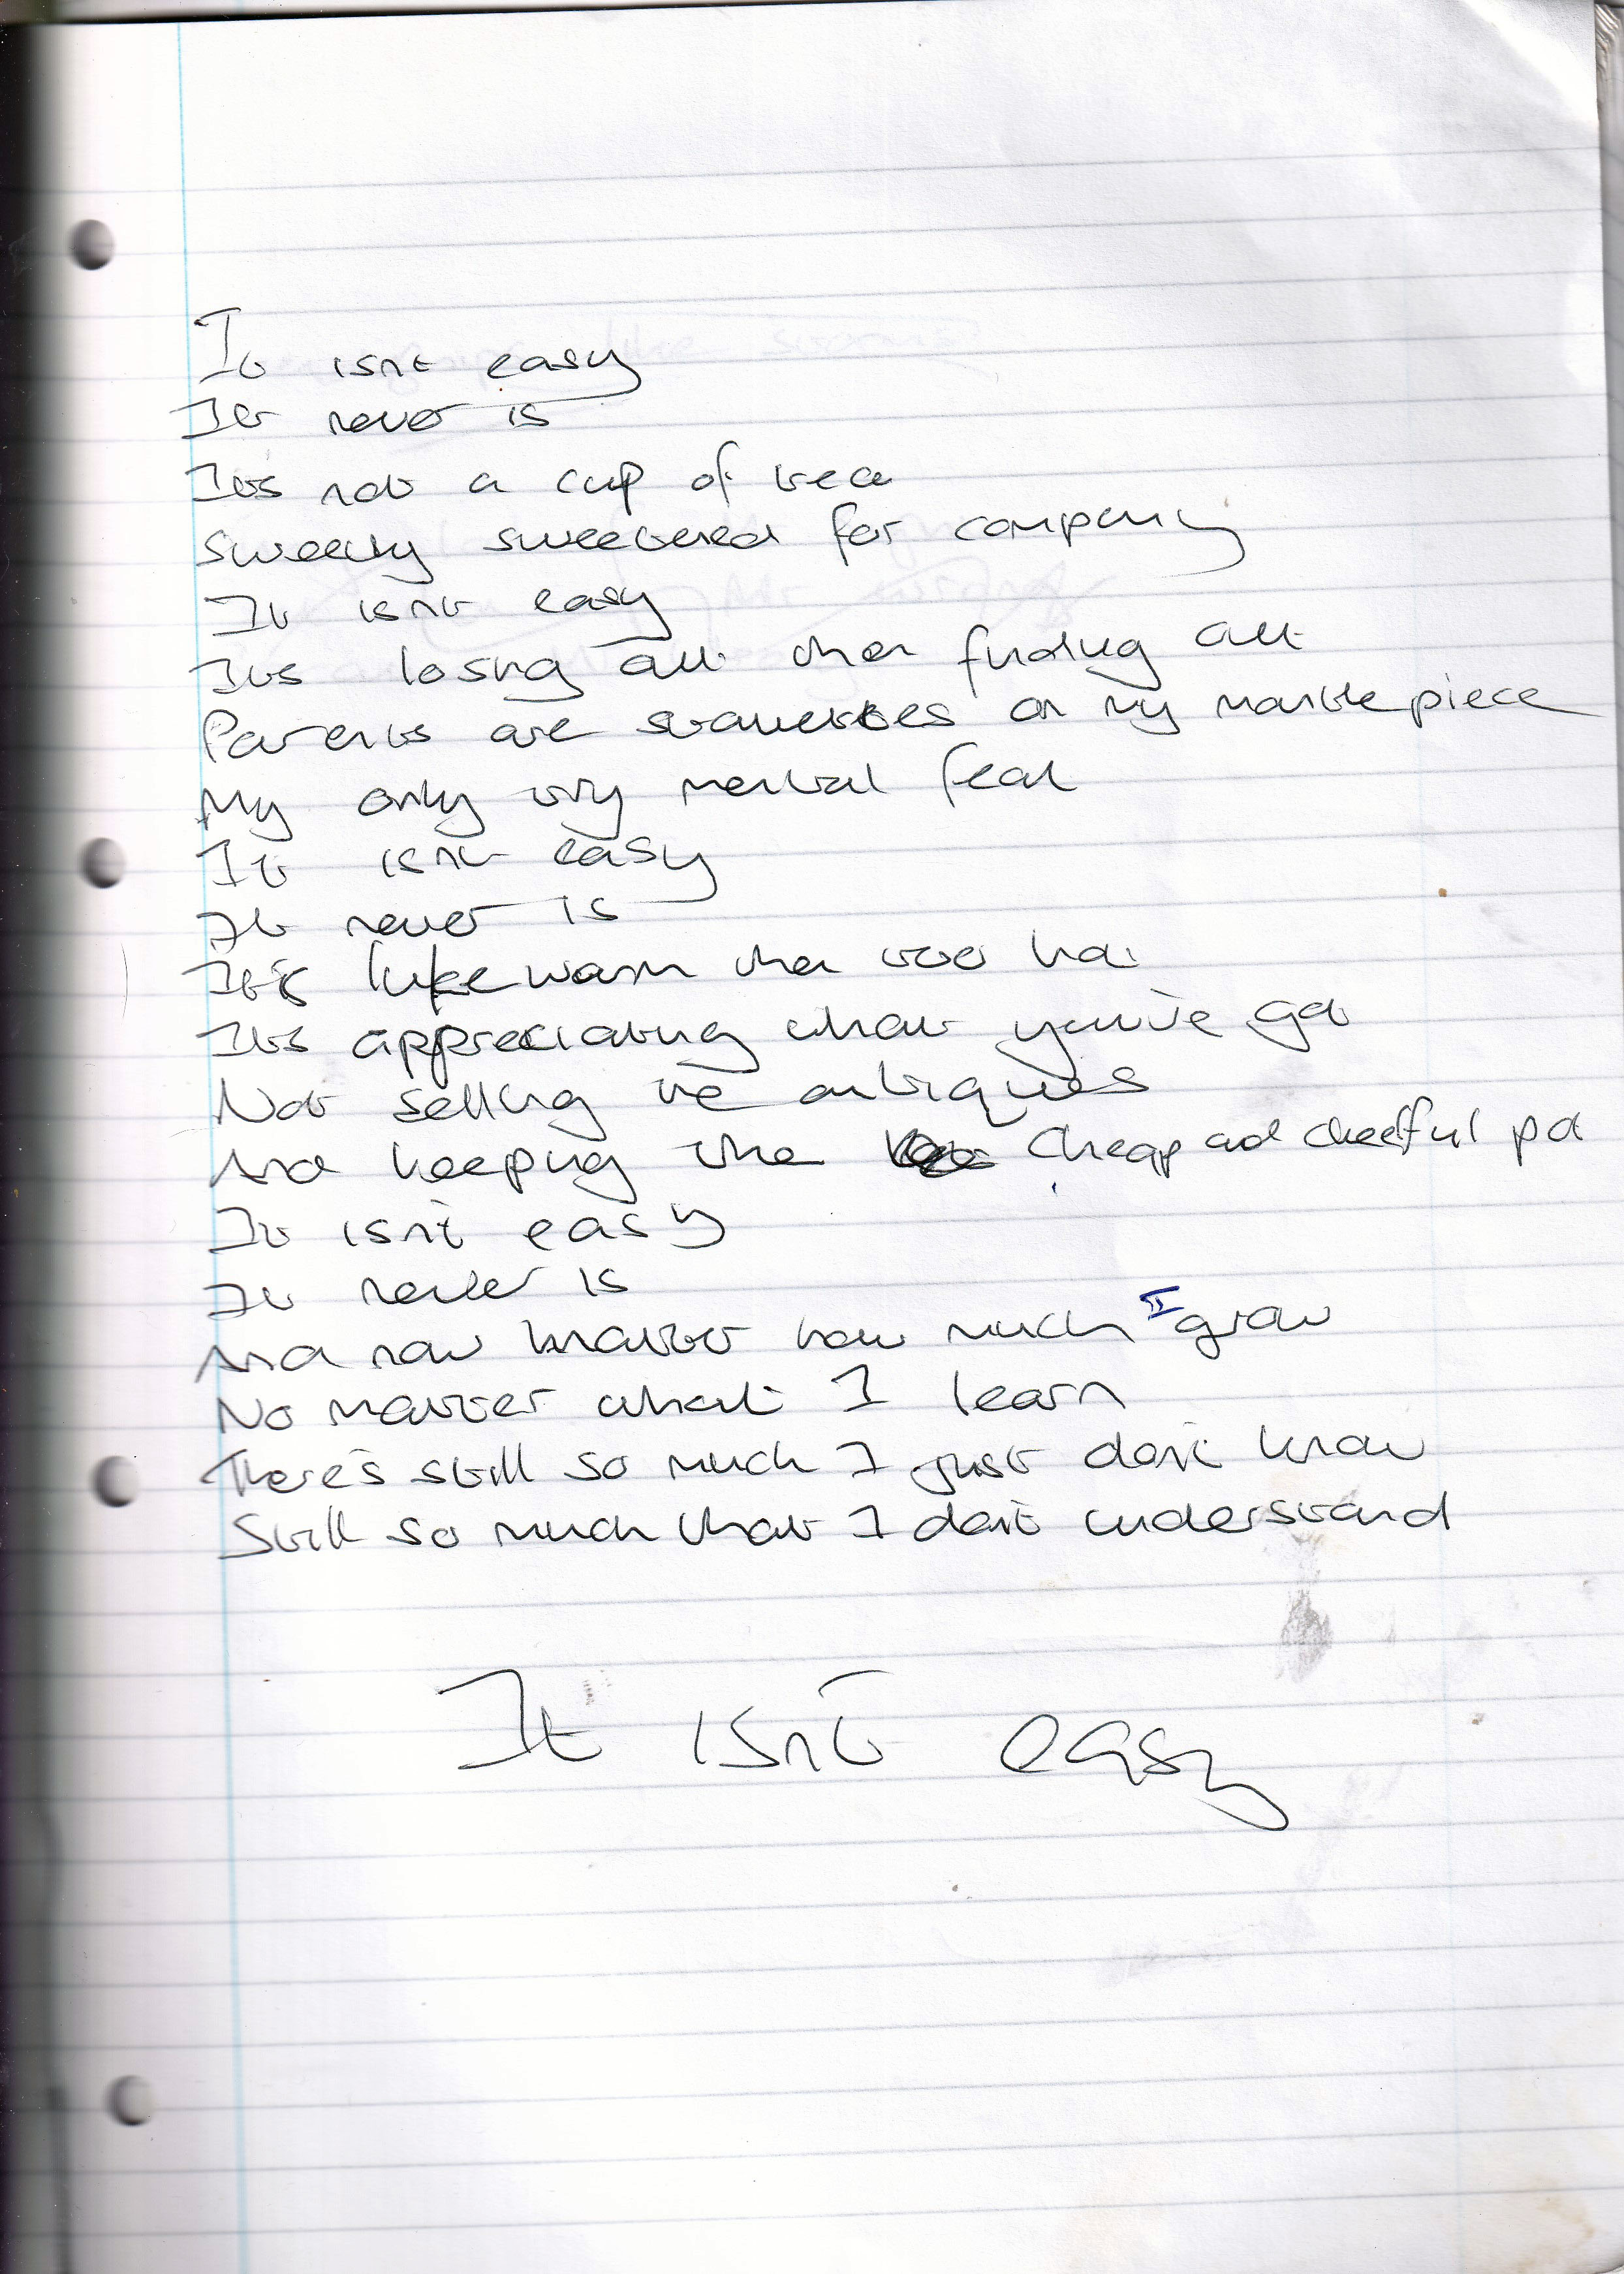 It isnt easy
It never is
Its not a cup of tea
Sweetly sweetened for company
It isnt easy
Its losing all then finding all
Parents are statuettes on my mantle piece
My only tiny mental feat
It isnt easy
It never is
It's lukewarm then too hot
Its appreciating what you've got
Not selling the antiques
And keeping the cheap and cheerful pot
It isn't easy
It never is
And now matter how much I grow
No matter what I learn
There's still so much I just don't know
Still so much that I don't understand
It isn't easy